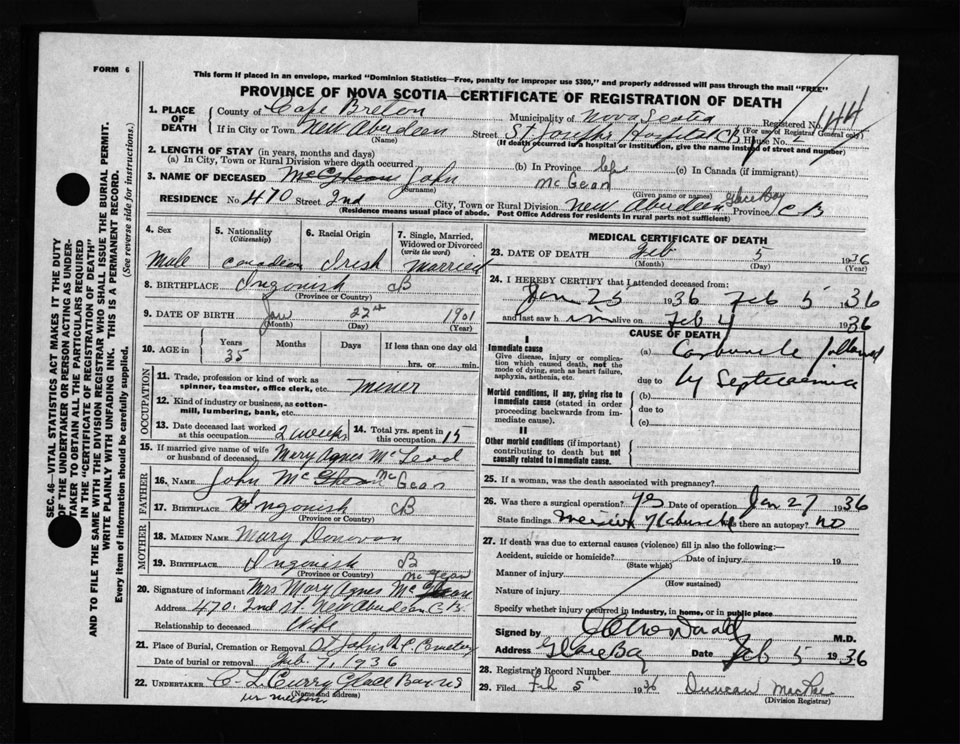 FORM 6
This form if placed in an envelope, marked "Dominion Statistics—Free, penalty for improper use $300," and properly addressed will pass through the mail "FREE"
PROVINCE OF NOVA SCOTIA—CERTIFICATE OF REGISTRATION OF DEATH
1. PLACE OF DEATH
County of Cape Breton
Municipality of Nova Scotia
Registered No.
(For use of Registrar General only)
If in City or Town New Aberdeen
(Name)
Street St Josephs Hospital CB House No.
(If death occurred in a hospital or institution, give the name instead of street and number)
2. LENGTH OF STAY (in years, months and days)
(a) In City, Town or Rural Division where death occurred
(b) In Province life
(c) In Canada (if immigrant)
3. NAME OF DECEASED John McGean
(Surname)
(Given name or names)
RESIDENCE No. 470 Street 2nd City, Town or Rural Division New Aberdeen Glace Bay Province CB
(Residence means usual place of abode. Post Office Address for residents in rural parts not sufficient)
4. Sex
Male
5. Nationality
(Citizenship)
Canadian
6. Racial Origin
Irish
7. Single, Married, Widowed or Divorced
(write the word)
Married
8. BIRTHPLACE Ingonish CB
(Province or Country)
9. DATE OF BIRTH Jan 27th 1901
(Month) (Day) (Year)
10. AGE in Years Months Days If less than one day old
35 hrs. or min.
OCCUPATION
11. Trade, profession or kind of work as spinner, teamster, office clerk, etc. Miner
12. Kind of industry or business, as cotton-mill, lumbering, bank, etc.
13. Date deceased last worked at this occupation 2 weeks
14. Total yrs. spent in this occupation 15
15. If married give name of wife or husband of deceased Mary Agnes McLeod
FATHER
16. NAME John McGean
17. BIRTHPLACE Ingonish CB
(Province or Country)
MOTHER
18. MAIDEN NAME Mary Donovan
19. BIRTHPLACE Ingonish CB
(Province or Country)
20. Signature of informant Mrs Mary Agnes McGean
Address 470. 2nd St. New Aberdeen C.B.
Relationship to deceased Wife
21. Place of Burial, Cremation or Removal St Johns R.C. Cemetery
Date of burial or removal Feb. 7, 1936
22. UNDERTAKER C. L. Curry Glace Bay NS
(Name and address)
MEDICAL CERTIFICATE OF DEATH
23. DATE OF DEATH Feb 5 1936
(Month) (Day) (Year)
24. I HEREBY CERTIFY that I attended deceased from:
Jan 25 1936 Feb 5 1936
and last saw him alive on Feb 4 1936
CAUSE OF DEATH
I
Immediate cause
Give disease, injury or complication which caused death, not the mode of dying, such as heart failure, asphyxia, asthenia, etc.
(a) Carbuncle followed
due to by Septicaemia
Morbid conditions, if any, giving rise to immediate cause (stated in order proceeding backwards from immediate cause).
(b)
due to
(c)
II
Other morbid conditions (if important) contributing to death but not causally related to immediate cause.
25. If a woman, was the death associated with pregnancy?
26. Was there a surgical operation? Yes Date of operation Jan 27 1936
State findings Incision of Carbuncle Was there an autopsy? No
27. If death was due to external causes (violence) fill in also the following:—
Accident, suicide or homicide? Date of injury 19
(State which)
Manner of injury
(How sustained)
Nature of injury
Specify whether injury occurred in industry, in home, or in public place
Signed by M.D.
Address Glace Bay Date Feb 5 1936
28. Registrar's Record Number
29. Filed Feb 5th 1936 Duncan MacRae
(Division Registrar)
SEC. 46—VITAL STATISTICS ACT MAKES IT THE DUTY
OF THE UNDERTAKER OR PERSON ACTING AS UNDERTAKER TO OBTAIN ALL THE PARTICULARS REQUIRED
IN THE "CERTIFICATE OF REGISTRATION OF DEATH"
AND TO FILE THE SAME WITH THE DIVISION REGISTRAR WHO SHALL ISSUE THE BURIAL PERMIT.
WRITE PLAINLY WITH UNFADING INK. THIS IS A PERMANENT RECORD.
Every item of information should be carefully supplied. (See reverse side for instructions.)